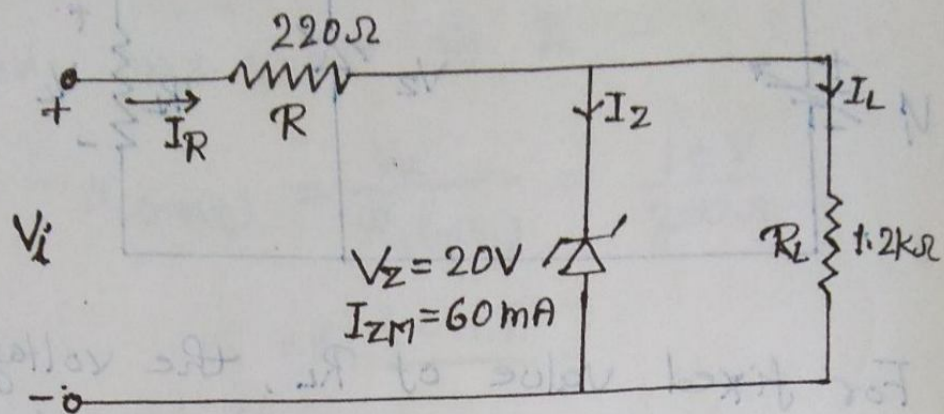 220Ω
+
I_R
R
I_Z
I_L
V_i
V_Z = 20V
I_ZM = 60mA
R_L
1.2kΩ
-